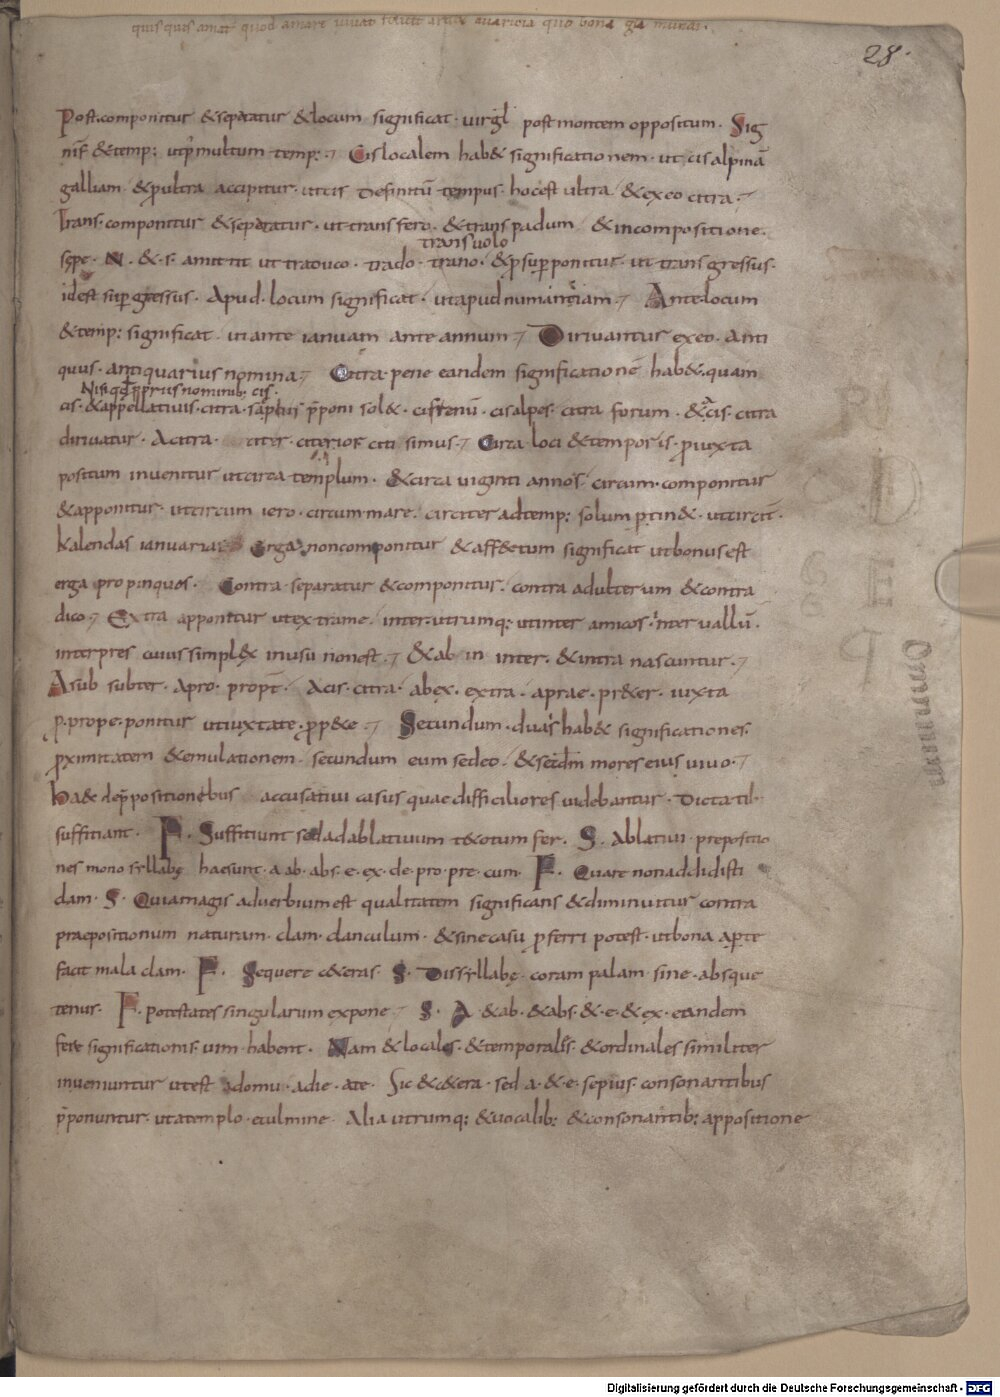 quisquis amat quod amare iuvat
28.
Post componitur &separatur &locum significat. uirgł post montem oppositum. Sig
nif̄ &temp: utp̄ multum temp:. Cis localem hab& significationem. ut cisalpinā
galliam. &pultra accipitur. utcis definitū tempus. hocest ultra. &exeo citra.
Trans. componitur &separatur. ut transfero. &trans padum &incompositione.
transuolo
sępe. N. &.s. amittit ut traduco. trado. trano. &psup̄ponitur. ut transgressus.
idest sup̄gressus. Apud. locum significat. utapud numantiam. Ante locum
&temp: significat. uti ante ianuam ante annum. Diriuantur exeo. anti
quus. antiquarius nomina. Citra. pene eandem significationē hab&. quam
Nisi qđ p̄priis nominib. cis.
cis. &appellatiuis. citra. sępius p̄poni sol&. cisrenū. cisalpes. citra forum. &acis. citra
diriuatur. Acitra. citer. citerior citissimus. Circa loci &temporis. p̄iuxta
positum inuenitur utcirca templum. &circa uiginti annos. circum. componitur
&apponitur. utcircum iero. circum mare. circiter adtemp: solum p̄tin&. utcircit̄.
kalendas ianuarias Erga. noncomponitur &aff&tum significat utbonus est
erga propinquos. Contra separatur &componitur. contra adulterum &contra
dico. Extra apponitur utextrame. inter. utrumq: utinter amicos. interuallū.
interpres cuius simplex inusu nonest. &ab in inter. &intra nascuntur.
Asub subter. Apro. propt̄. Acis. citra. abex. extra. aprae. pr&er. iuxta
p. prope. ponitur utiuxtate. p̄p&e. Secundum. duas hab& significationes.
p̄ximitatem &emulationem. secundum eum sedeo. &secdm̄ mores eius uiuo.
ha&c dep̄positionebus accusatiui casus quae difficiliores uidebantur. Dicta tib.
suffitiant. F. Suffitiunt sedadablatiuum t&otum fer. S. Ablatiui prepositio
nes monosyllabę haesunt. a. ab. abs. e. ex. de. pro. pre. cum. F. Quare nonaddidisti
clam. S. Quiamagis aduerbium est qualitatem significans &diminuitur contra
praepositionum naturam. clam. clanculum. &sinecasu p̄ferri potest. utbona ap̄te
facit mala clam. F. Sequere c&eras S. Dissyllabę. coram palam sine. absque
tenus. F. Potestates singularum expone. S. A &ab. &abs. &.e. &ex. eandem
fere significationis uim habent. Nam &locales. &temporalis. &ordinales similiter
inueniuntur utest adomu. adie. ate. Sic &c&era. sed a. &.e. sepius. consonantibus
p̄ponuntur. utatemplo. eculmine. Alia utrumq: &uocalib: &consonantib: appositione
Digitalisierung gefördert durch die Deutsche Forschungsgemeinschaft - DFG